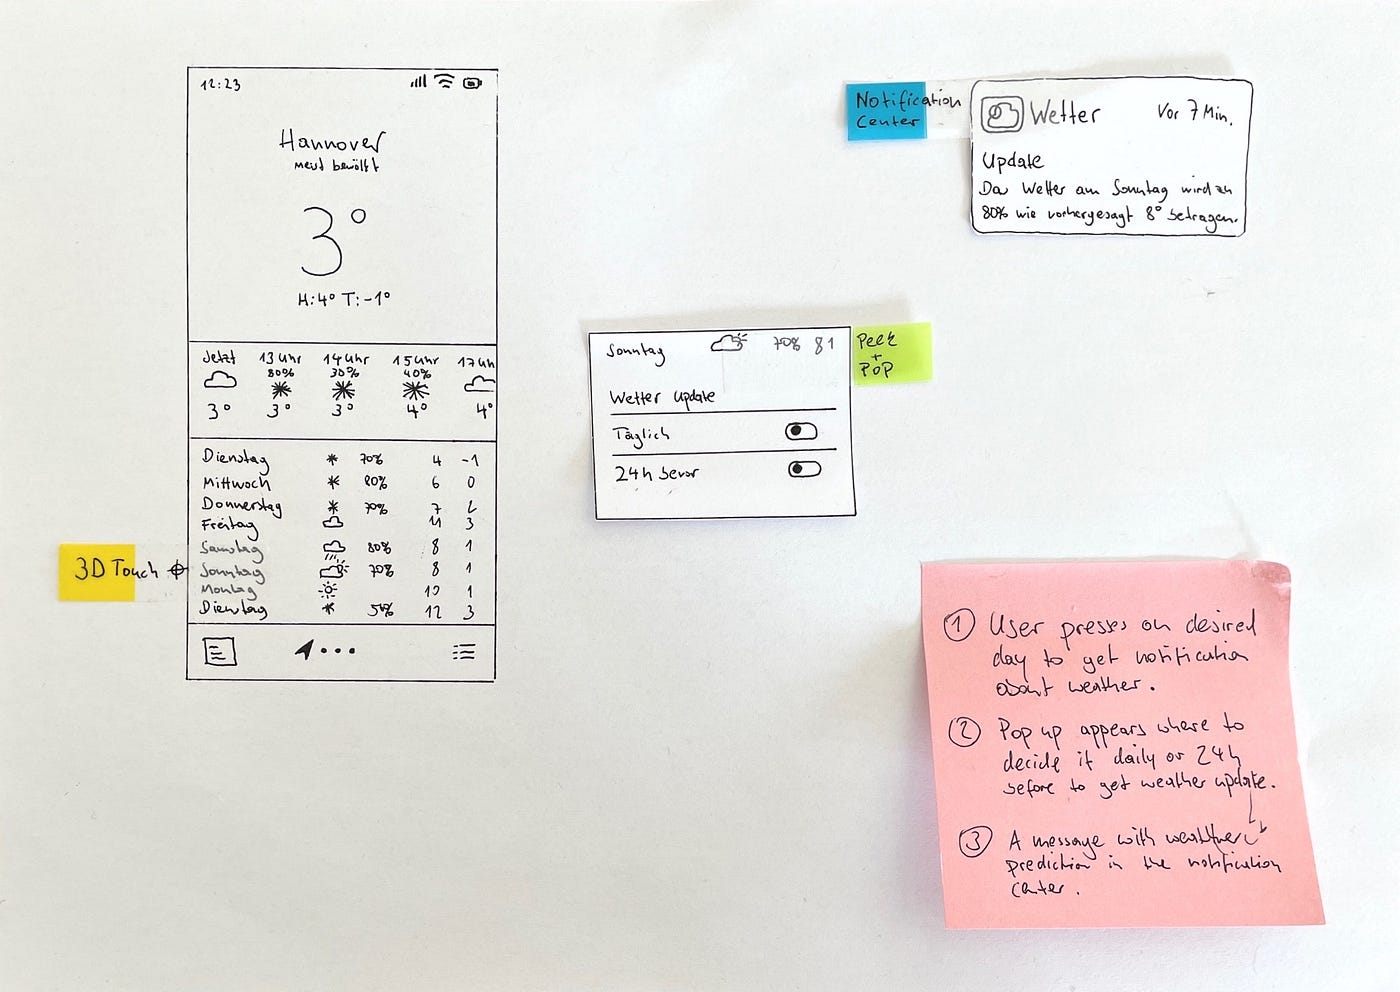 12:23
Hannover
meist bewölkt
3°
H:4° T:-1°
Jetzt 13 Uhr 14 Uhr 15 Uhr 17 Uh
80% 30% 40%
3° 3° 3° 4° 4°
Dienstag 70% 4 -1
Mittwoch 80% 6 0
Donnerstag 70% 7
Freitag 11 3
Samstag 80% 8 1
Sonntag 70% 8 1
Montag 10 1
Dienstag 50% 12 3
3D Touch
Sonntag 70% 8 1
Wetter Update
Täglich
24h bevor
Peek
+
POP
Notification
Center
Wetter Vor 7 Min.
Update
Das Wetter am Sonntag wird zu
80% wie vorhergesagt 8° betragen.
1 User presses on desired
day to get notification
about weather.
2 Pop up appears where to
decide if daily or 24h
before to get weather update.
3 A message with weather
prediction in the notification
center.